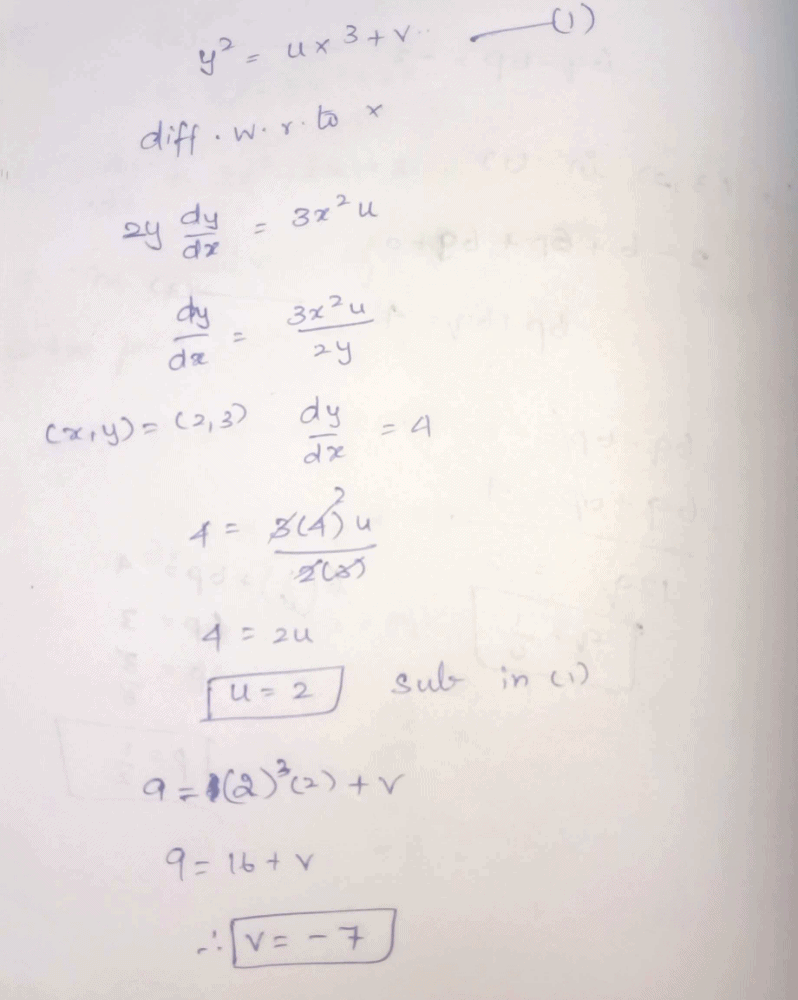 y² = ux³ + v —— (1)
diff. w. r. to x
2y dy/dx = 3x²u
dy/dx = 3x²u / 2y
(x,y) = (2,3) dy/dx = 4
4 = 3(4)² u / 2(3)
4 = 2u
u = 2 sub in (1)
9 = (2)³(2) + v
9 = 16 + v
∴ v = -7